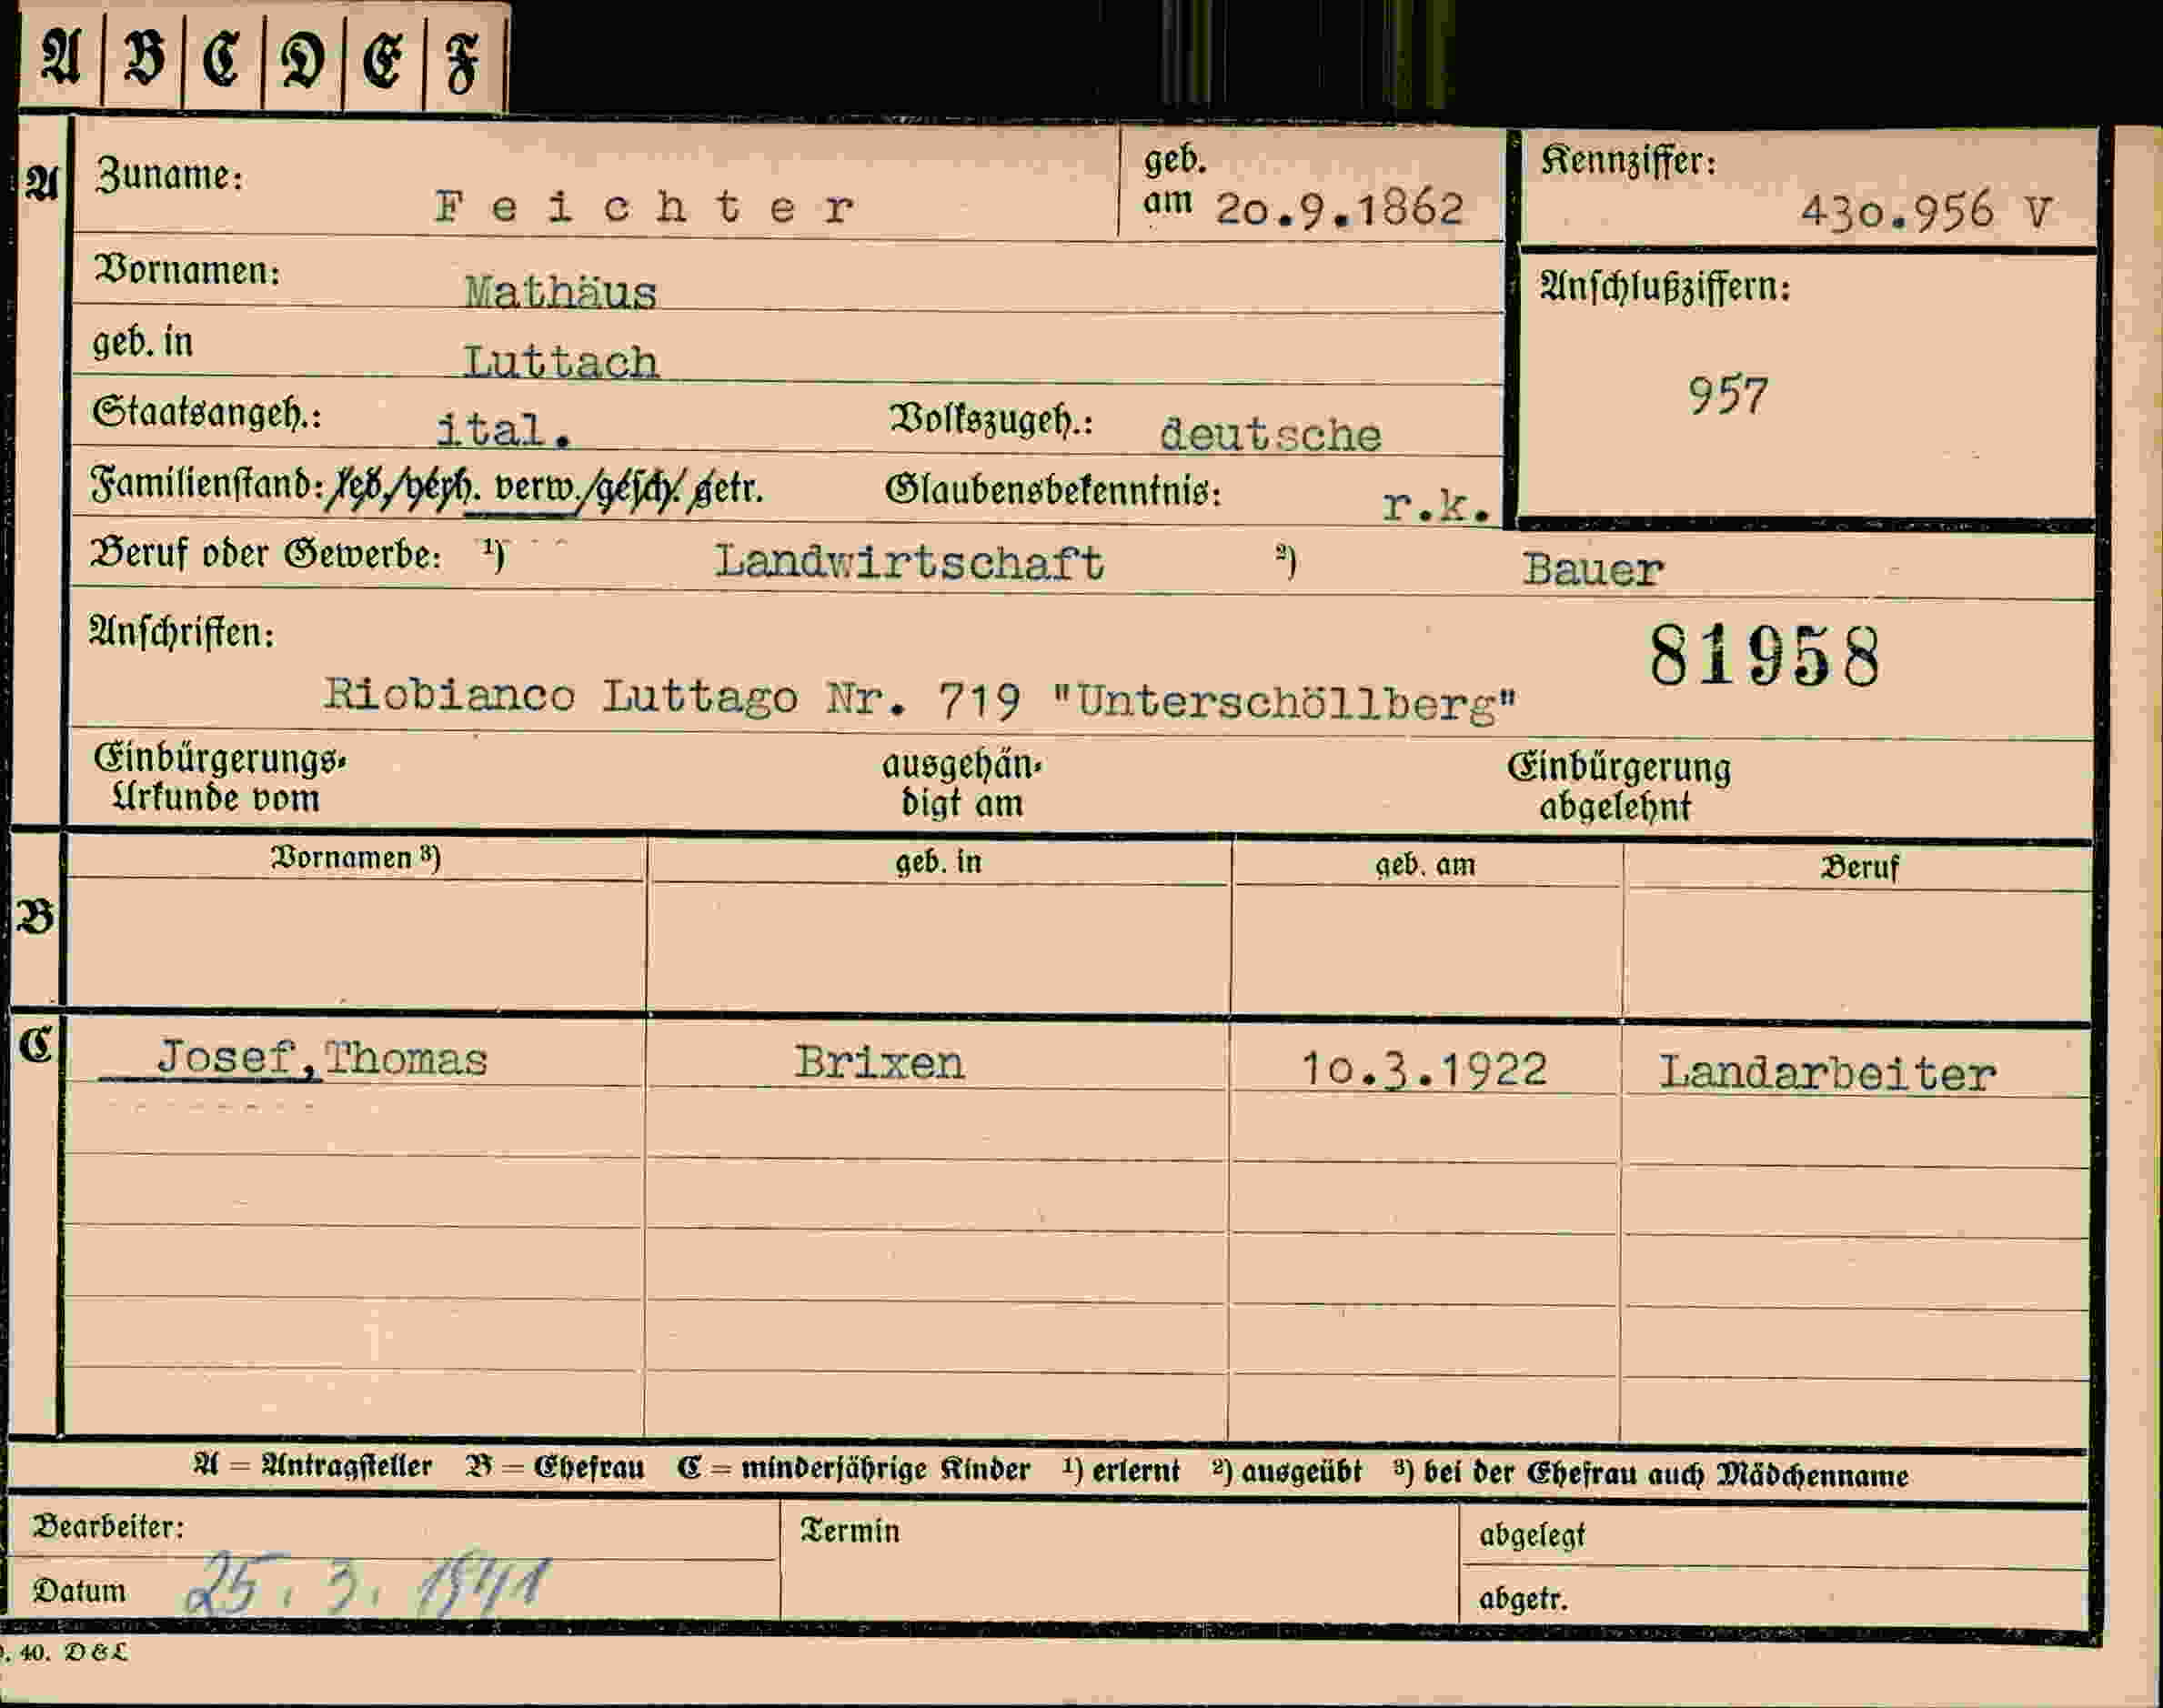 A B C D E F
A Zuname: Feichter geb. am 20.9.1862 Kennziffer: 430.956 V
Vornamen: Mathäus Anschlußziffern:
geb. in Luttach 957
Staatsangeh.: ital. Volkszugeh.: deutsche
Familienstand: led./verh. verw./gesch./getr. Glaubensbekenntnis: r.k.
Beruf oder Gewerbe: 1) Landwirtschaft 2) Bauer
Anschriften: 81958
Riobianco Luttago Nr. 719 "Unterschöllberg"
Einbürgerungs- ausgehän- Einbürgerung
Urkunde vom digt am abgelehnt
B Vornamen 3) geb. in geb. am Beruf
C Josef, Thomas Brixen 10.3.1922 Landarbeiter
A = Antragsteller B = Ehefrau C = minderjährige Kinder 1) erlernt 2) ausgeübt 3) bei der Ehefrau auch Mädchenname
Bearbeiter: Termin abgelegt
Datum 25.3.1941 abgetr.
. 40. D & L